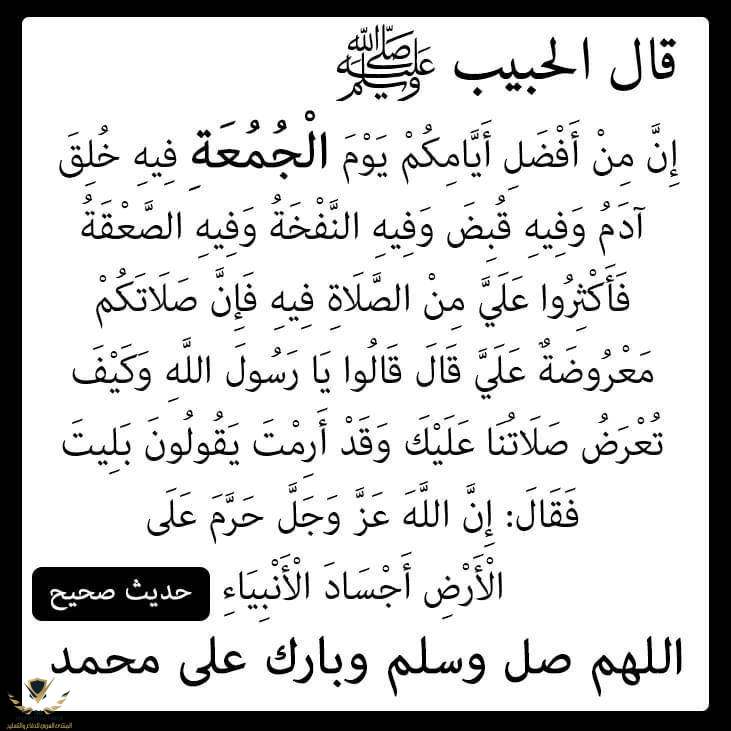 قال الحبيب ﷺ
إِنَّ مِنْ أَفْضَلِ أَيَّامِكُمْ يَوْمَ الْجُمُعَةِ فِيهِ خُلِقَ
آدَمُ وَفِيهِ قُبِضَ وَفِيهِ النَّفْخَةُ وَفِيهِ الصَّعْقَةُ
فَأَكْثِرُوا عَلَيَّ مِنْ الصَّلَاةِ فِيهِ فَإِنَّ صَلَاتَكُمْ
مَعْرُوضَةٌ عَلَيَّ قَالَ قَالُوا يَا رَسُولَ اللَّهِ وَكَيْفَ
تُعْرَضُ صَلَاتُنَا عَلَيْكَ وَقَدْ أَرِمْتَ يَقُولُونَ بَلِيتَ
فَقَالَ: إِنَّ اللَّهَ عَزَّ وَجَلَّ حَرَّمَ عَلَى
الْأَرْضِ أَجْسَادَ الْأَنْبِيَاءِ
حديث صحيح
اللهم صل وسلم وبارك على محمد
المنتدى العربي للدفاع والتسليح